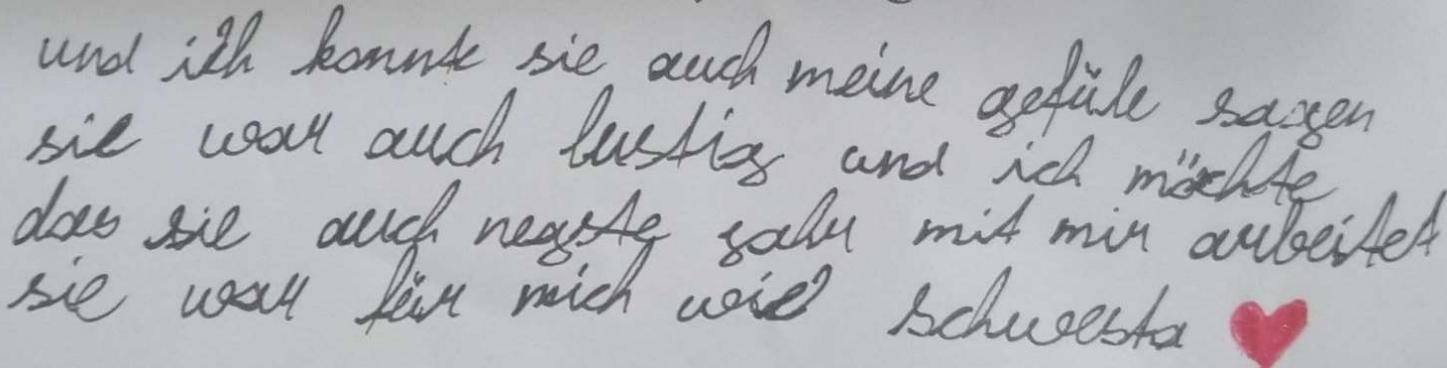 und ich konnte sie auch meine gefüle sagen
sie war auch lustig und ich möchte
das sie auch negste jahr mit mir arbeitet
sie war für mich wie schwesta